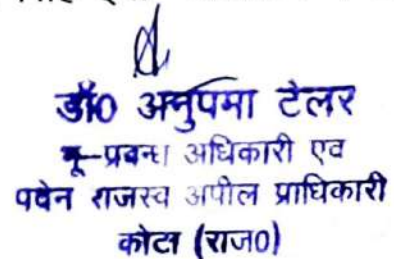 डॉ0 अनुपमा टेलर
भू-प्रबन्ध अधिकारी एवं
पदेन राजस्व अपील प्राधिकारी
कोटा (राज0)